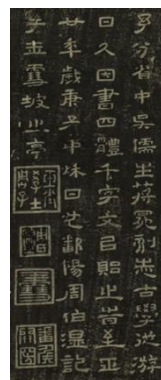 予分省中吳儒生蔣冕刻志古學從游
日久因書四體千字文㠯貽之旹至正
廿年歲庚子中秋日也鄱陽周伯溫記
于玉雪坡之亭